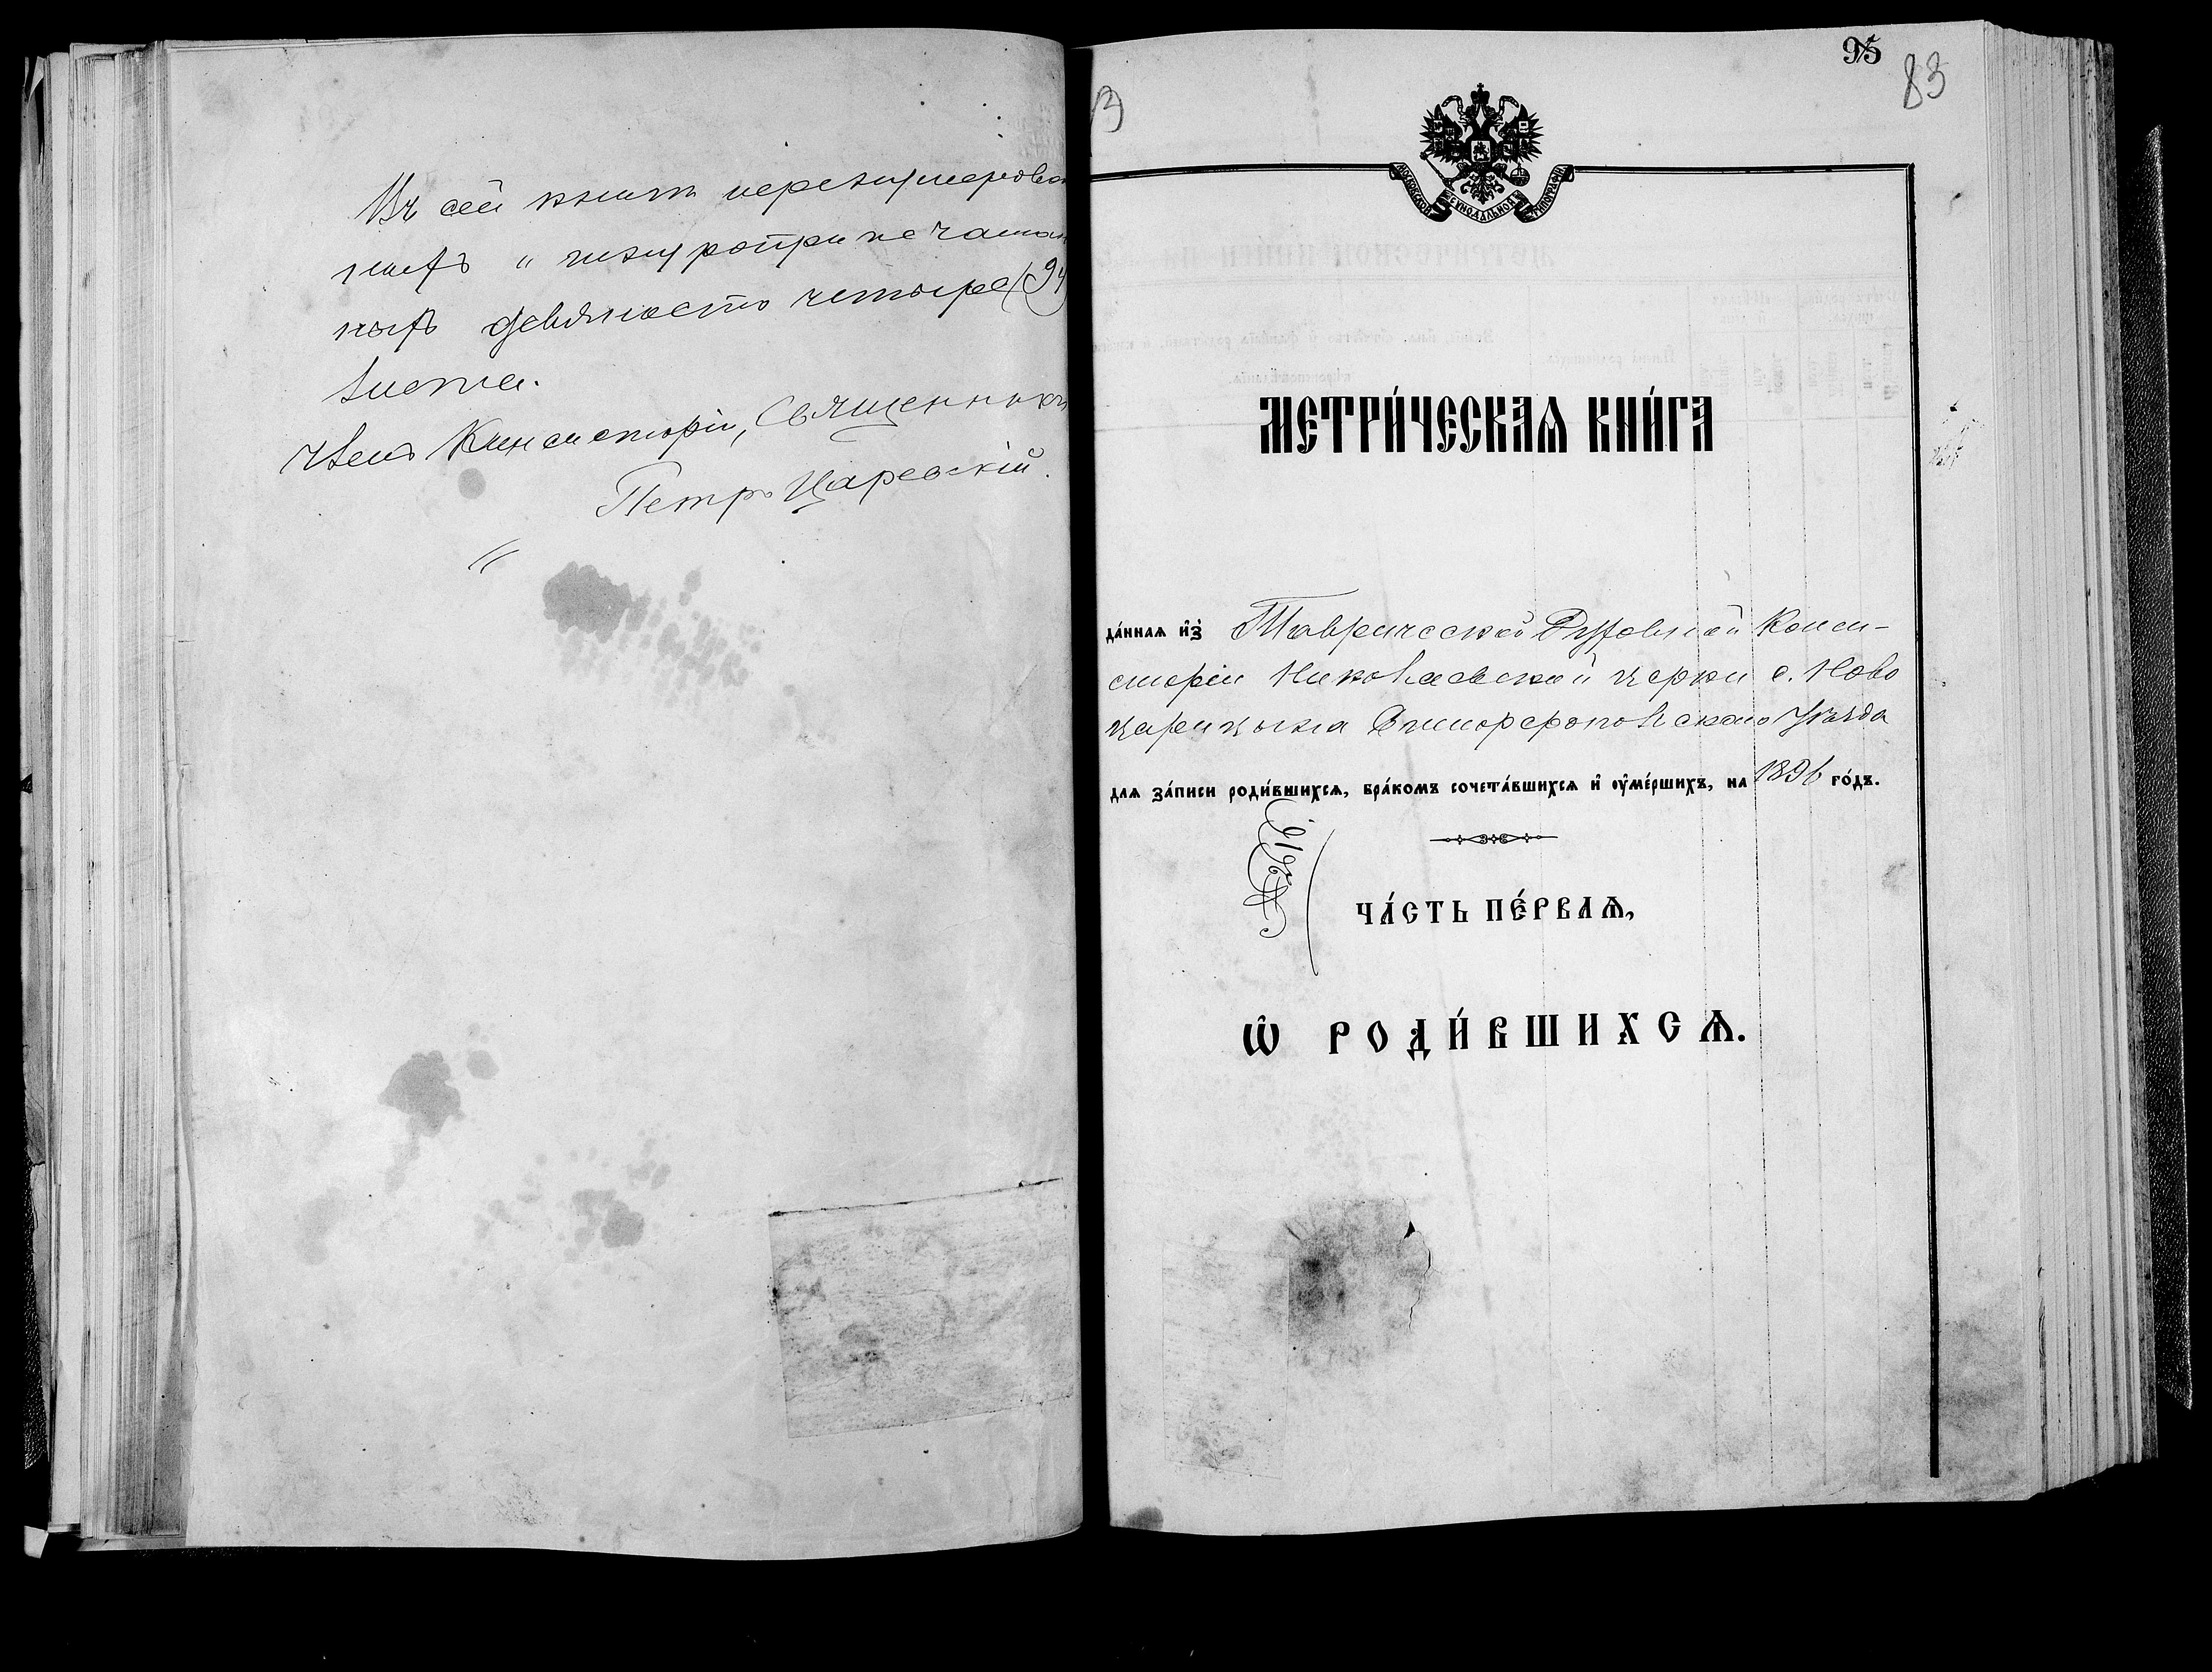 Въ сей книгѣ перенумерован
ныхъ и шнуроприпечатан
ныхъ девяносто четыре (94)
листа.
Членъ Консисторіи, Священникъ
Петръ Царевскій.
95
83
МОСКОВСКОЙ СѴНОДАЛЬНОЙ ТИПОГРАФІИ
МЕТРИ́ЧЕСКАѦ КНИ́ГА
да́ннаѧ и҆з̾ Таврической Духовной Конси-
сторіи Николаевской церкви с. Ново
царицына Симферопольскаго Уѣзда
длѧ за́писи роди́вшихсѧ, бра́комъ сочета́вшихсѧ и҆ ᲂу҆ме́ршихъ, на 1896 го́дъ.
ЧА́СТЬ ПЕ́РВАѦ,
Ѡ҆ РОДИ́ВШИХСѦ.